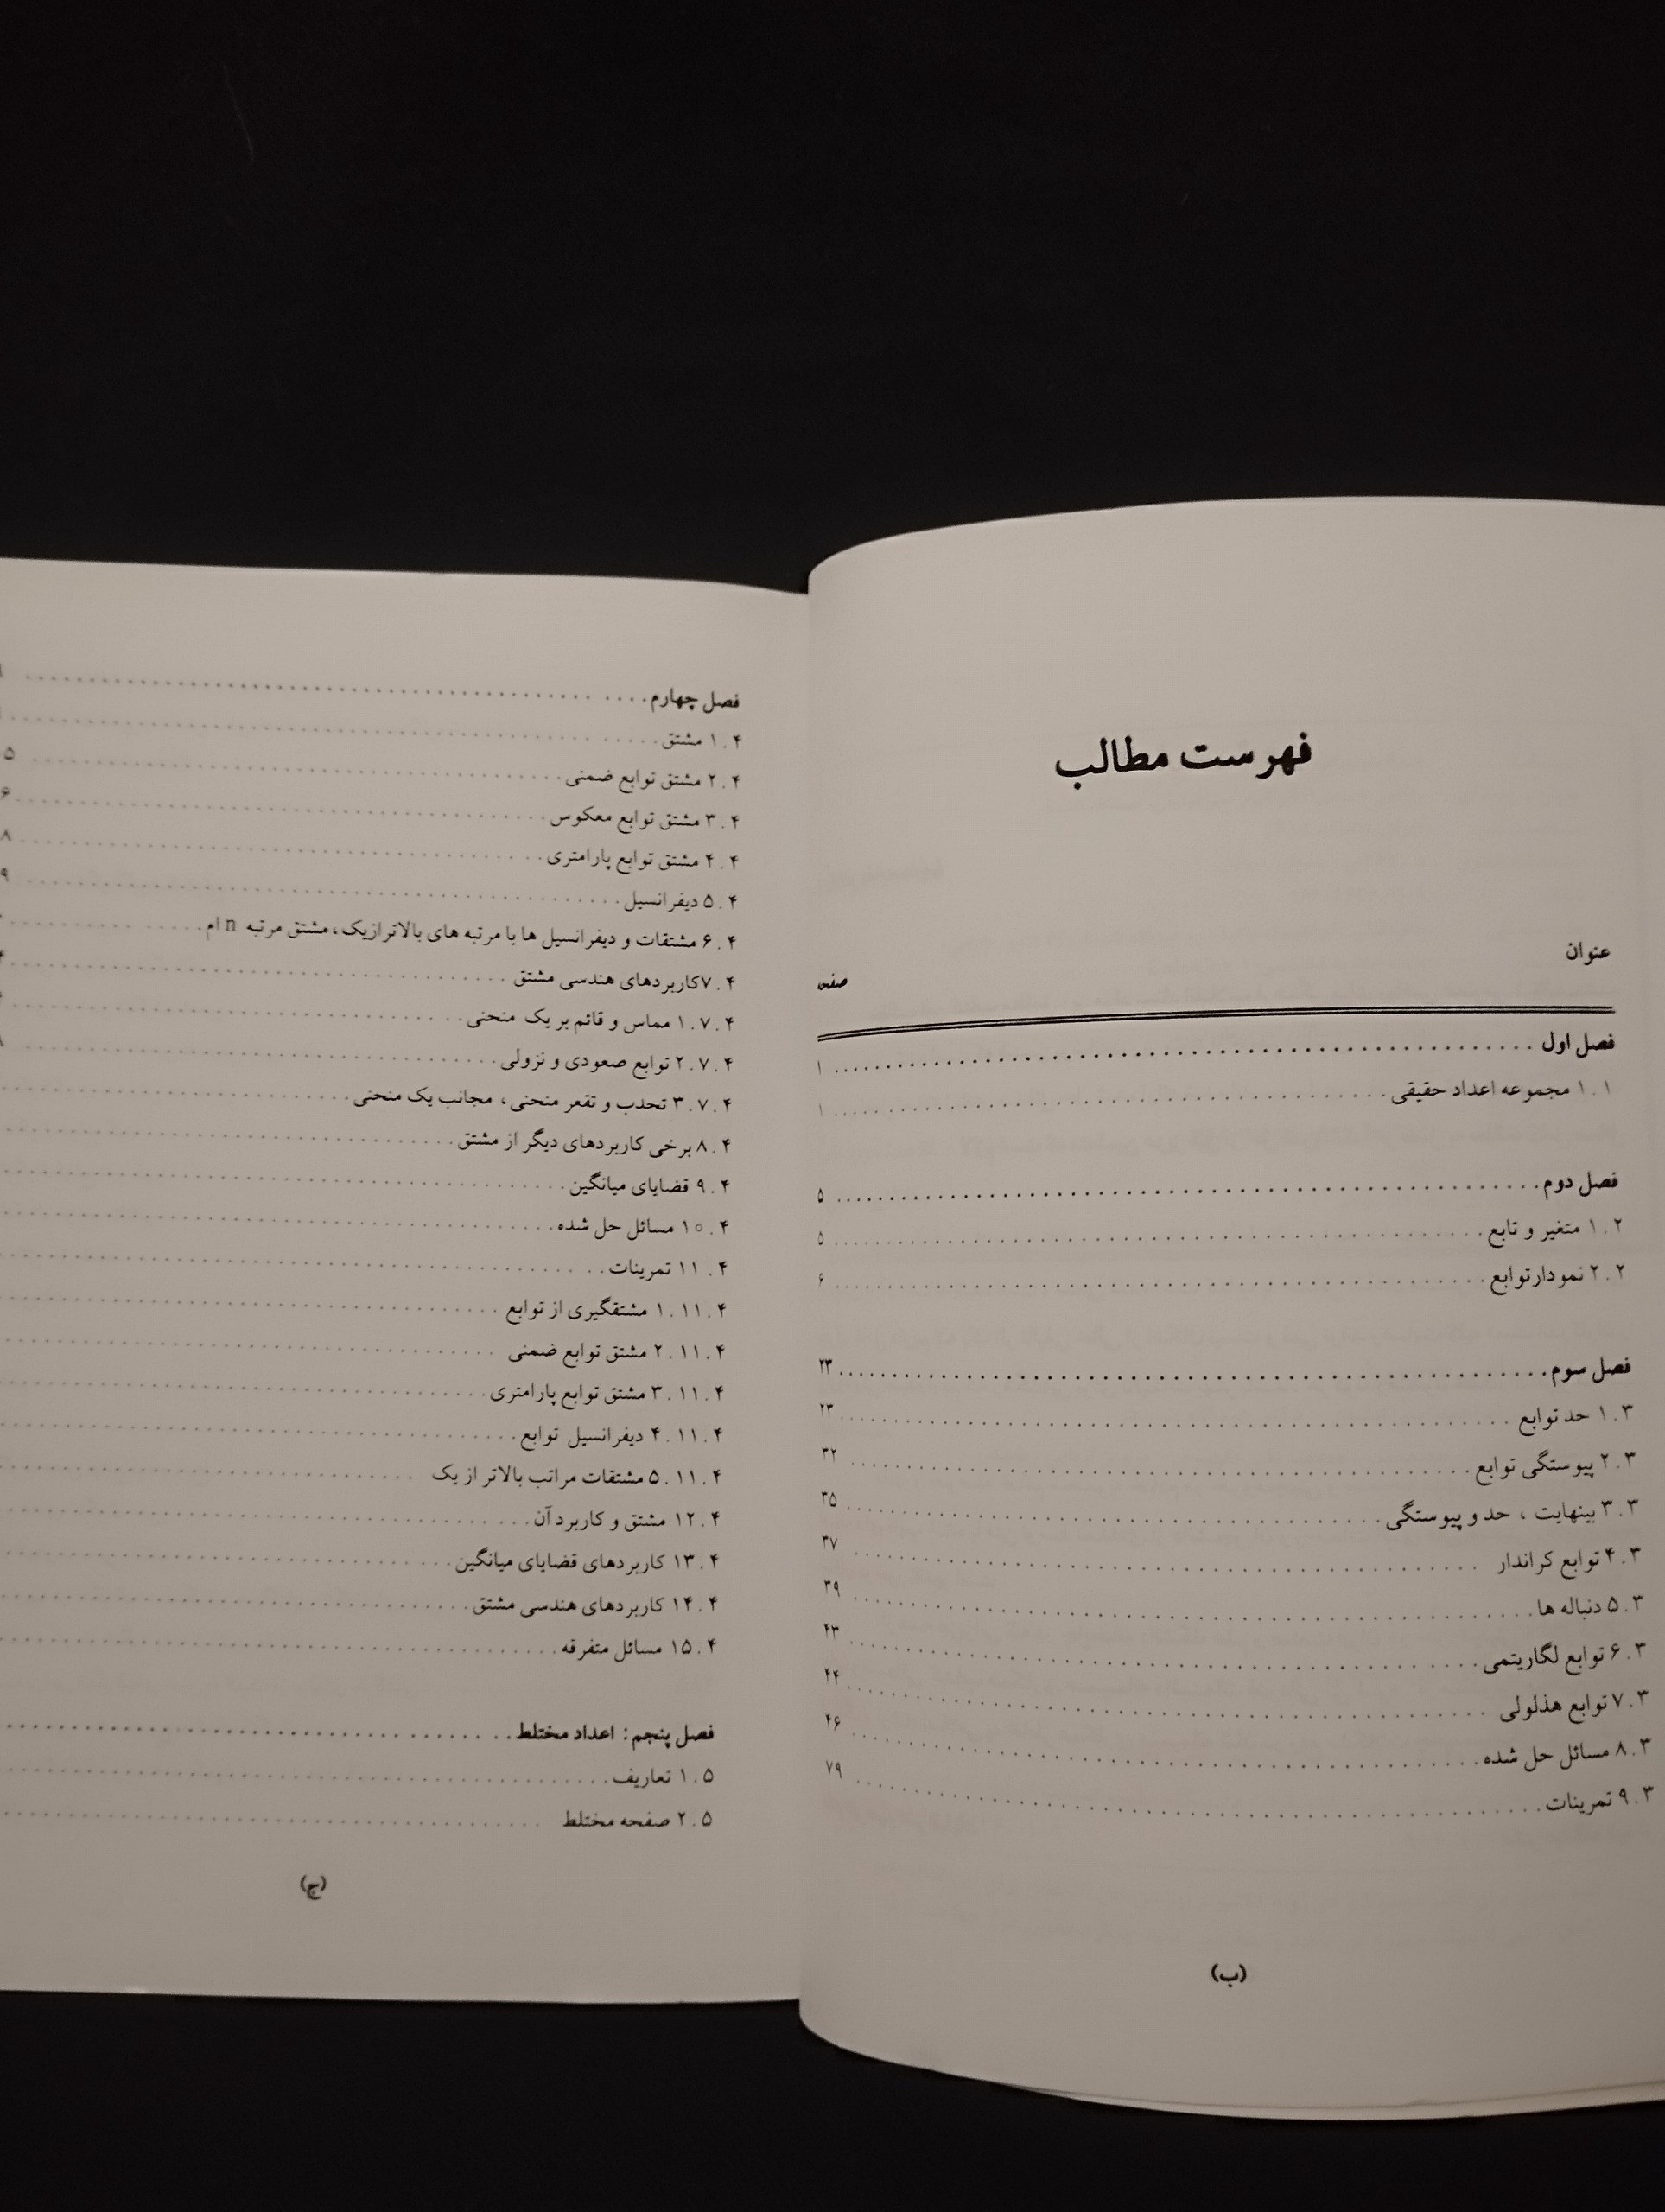 فهرست مطالب
عنوان
صفحه
فصل اول ۱
۱.۱ مجموعه اعداد حقیقی ۱
فصل دوم ۵
۱.۲ متغیر و تابع ۵
۲.۲ نمودار توابع ۶
فصل سوم ۲۳
۱.۳ حد توابع ۲۳
۲.۳ پیوستگی توابع ۳۲
۳.۳ بینهایت ، حد و پیوستگی ۳۵
۴.۳ توابع کراندار ۳۷
۵.۳ دنباله ها ۳۹
۶.۳ توابع لگاریتمی ۴۳
۷.۳ توابع هذلولی ۴۴
۸.۳ مسائل حل شده ۴۶
۹.۳ تمرینات ۷۹
(ب)
فصل چهارم
۱.۴ مشتق
۲.۴ مشتق توابع ضمنی
۳.۴ مشتق توابع معکوس
۴.۴ مشتق توابع پارامتری
۵.۴ دیفرانسیل
۶.۴ مشتقات و دیفرانسیل ها با مرتبه های بالاتر ازیک، مشتق مرتبه n ام
۷.۴ کاربردهای هندسی مشتق
۱.۷.۴ مماس و قائم بر یک منحنی
۲.۷.۴ توابع صعودی و نزولی
۳.۷.۴ تحدب و تقعر منحنی، مجانب یک منحنی
۸.۴ برخی کاربردهای دیگر از مشتق
۹.۴ قضایای میانگین
۱۰.۴ مسائل حل شده
۱۱.۴ تمرینات
۱.۱۱.۴ مشتقگیری از توابع
۲.۱۱.۴ مشتق توابع ضمنی
۳.۱۱.۴ مشتق توابع پارامتری
۴.۱۱.۴ دیفرانسیل توابع
۵.۱۱.۴ مشتقات مراتب بالاتر از یک
۱۲.۴ مشتق و کاربرد آن
۱۳.۴ کاربردهای قضایای میانگین
۱۴.۴ کاربردهای هندسی مشتق
۱۵.۴ مسائل متفرقه
فصل پنجم: اعداد مختلط
۱.۵ تعاریف
۲.۵ صفحه مختلط
(ج)